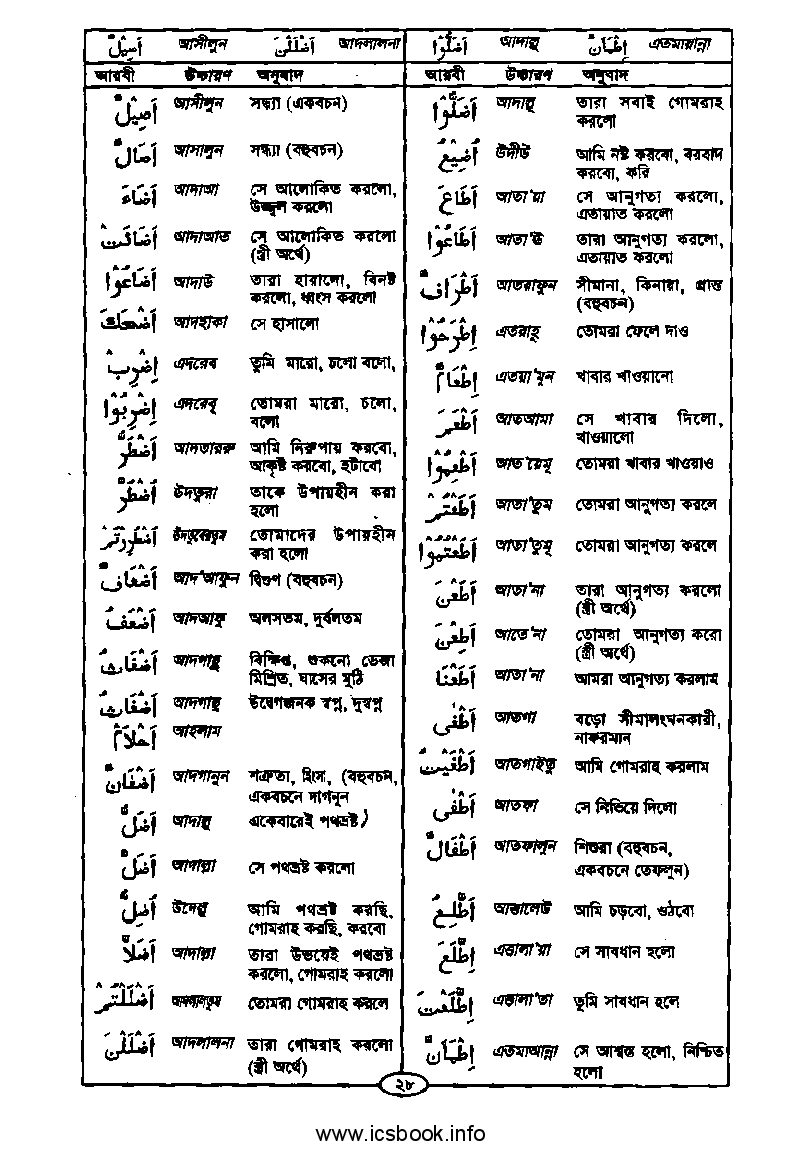 أَصِيْلٌ আসীলুন أَضْلَلْنَ আদলালনা
أَضَلُّوْا আদাল্লু إِطْمَأَنَّ এতমায়ান্না
আরবী উচ্চারণ অনুবাদ
أَصِيْلٌ আসীলুন সন্ধ্যা (একবচন)
أَصَالٌ আসালুন সন্ধ্যা (বহুবচন)
أَضَاءَ আদাআ সে আলোকিত করলো,
উজ্জ্বল করলো
أَضَائَتْ আদাআত সে আলোকিত করলো
(স্ত্রী অর্থে)
أَضَاعُوْا আদাউ তারা হারালো, বিনষ্ট
করলো, ধ্বংস করলো
أَضْحَكَ আদহাকা সে হাসালো
إِضْرِبْ এদরেব তুমি মারো, চলো বলো,
إِضْرِبُوْا এদরেবু তোমরা মারো, চলো,
বলো
أَضْطَرُّ আদতাররু আমি নিরুপায় করবো,
আকৃষ্ট করবো, হটাবো
أَضْطُرَّ উদতুররা তাকে উপায়হীন করা
হলো
أُضْطُرِرْتُمْ তোমাদের উপায়হীন
করা হলো
أَضْعَافٌ আদ'আফুন দ্বিগুণ (বহুবচন)
أَضْعَفُ আদআফু অলসতম, দুর্বলতম
أَضْغَاثُ আদগাছু বিক্ষিপ্ত, শুকনো ভেজা
মিশ্রিত, ঘাসের মুঠি
أَضْغَاثُ আদগাছু উদ্বেগজনক স্বপ্ন, দুস্বপ্ন
أَحْلَامٌ আহলাম
أَضْغَانٌ আদগানুন শত্রুতা, হিংসা, (বহুবচন,
একবচনে দাগনুন
أَضَلُّ আদাল্লু একেবারেই পথভ্রষ্ট)
أَضَلَّ আদাল্লা সে পথভ্রষ্ট করলো
أُضِلُّ উদেল্লু আমি পথভ্রষ্ট করছি,
গোমরাহ করছি, করবো
أَضَلَّا আদাল্লা তারা উভয়েই পথভ্রষ্ট
করলো, গোমরাহ করলো
أَضْلَلْتُمْ আদলালতুম তোমরা গোমরাহ করলে
أَضْلَلْنَ আদলালনা তারা গোমরাহ করলো
(স্ত্রী অর্থে)
আরবী উচ্চারণ অনুবাদ
أَضَلُّوْا আদাল্লু তারা সবাই গোমরাহ
করলো
أُضِيْعُ উদীউ আমি নষ্ট করবো, বরবাদ
করবো, করি
أَطَاعَ আতা'য়া সে আনুগত্য করলো,
এতায়াত করলো
أَطَاعُوْا আতা'উ তারা আনুগত্য করলো,
এতায়াত করলো
أَطْرَافٌ আতরাফুন সীমানা, কিনারা, প্রান্ত
(বহুবচন)
إِطْرَحُوْا এতরাহু তোমরা ফেলে দাও
إِطْعَامٌ এতয়া'মুন খাবার খাওয়ানো
أَطْعَمَ আতআমা সে খাবার দিলো,
খাওয়ালো
أَطْعِمُوْا আত'য়েমু তোমরা খাবার খাওয়াও
أَطَعْتُمْ আতা'তুম তোমরা আনুগত্য করলে
أَطَعْتُمُوْا আতা'তুমু তোমরা আনুগত্য করলে
أَطَعْنَ আতা'না তারা আনুগত্য করলো
(স্ত্রী অর্থে)
أَطِعْنَ আতে'না তোমরা আনুগত্য করো
(স্ত্রী অর্থে)
أَطَعْنَا আতা'না আমরা আনুগত্য করলাম
أَطْغٰى আতগা বড়ো সীমালংঘনকারী,
নাফরমান
أَطْغَيْتُ আতগাইতু আমি গোমরাহ করলাম
أَطْفٰى আতফা সে নিভিয়ে দিলো
أَطْفَالٌ আতফালুন শিশুরা (বহুবচন,
একবচনে তেফলুন)
أَطَّلِعُ আত্তালেউ আমি চড়বো, ওঠবো
إِطَّلَعَ এত্তালা'য়া সে সাবধান হলো
إِطَّلَعْتَ এত্তালা'তা তুমি সাবধান হলে
إِطْمَأَنَّ এতমাআন্না সে আশ্বস্ত হলো, নিশ্চিত
হলো
২৮
www.icsbook.info